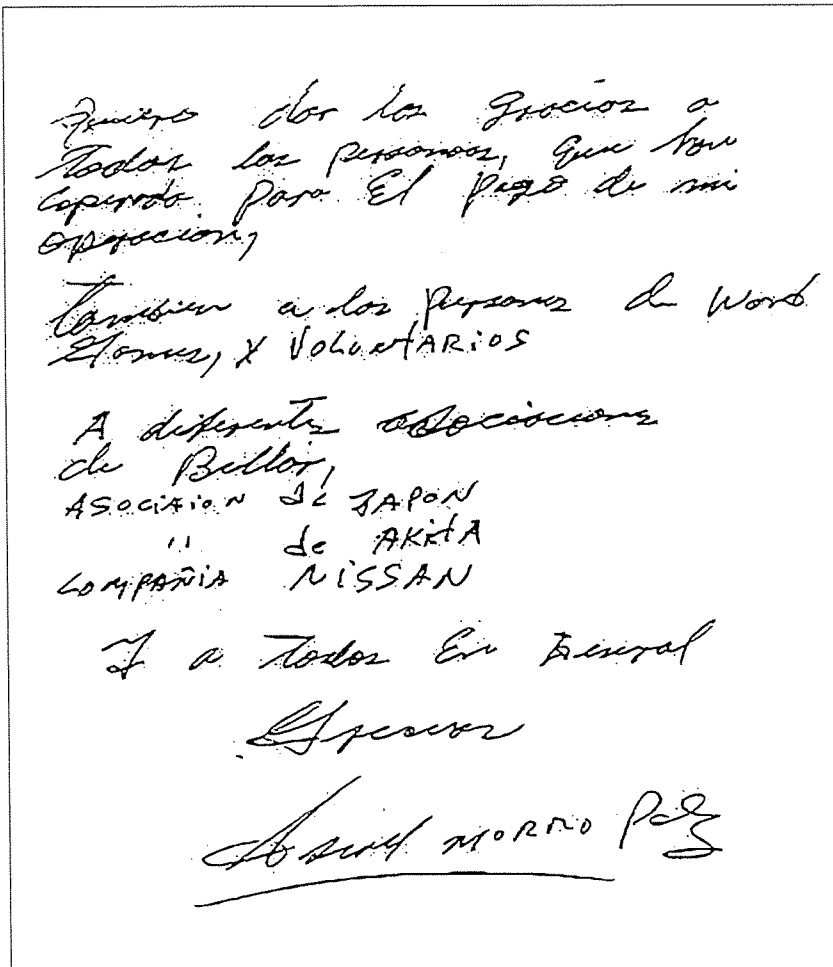 Quiero dar las gracias a
todas las personas, que han
coperado para El pago de mi
operacion,
tambien a las personas de Word
y VOLUNTARIOS
A diferentes asociaciones
de
ASOCIAION de JAPON
" de AKITA
COMPAÑIA NISSAN
Y a todos En General
Gracias
MORNO